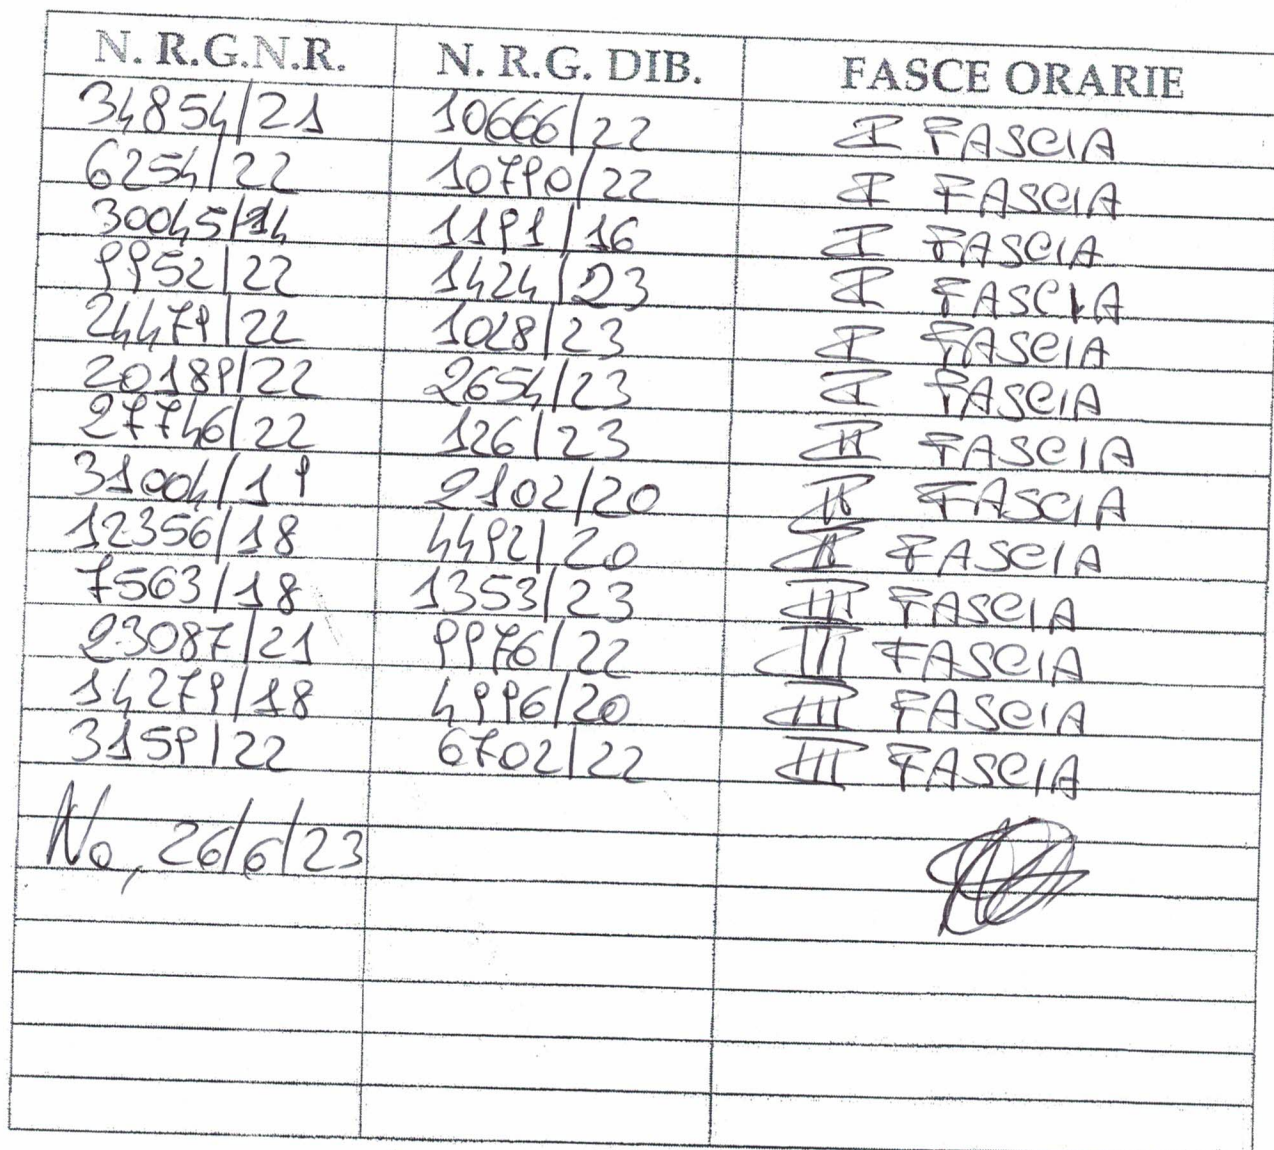 N. R.G.N.R. N. R.G. DIB. FASCE ORARIE
34854/21 10666/22 I FASCIA
6254/22 10790/22 I FASCIA
30045/14 1191/16 I FASCIA
9952/22 1424/23 I FASCIA
24479/22 1028/23 I FASCIA
20189/22 2654/23 I FASCIA
27746/22 126/23 II FASCIA
31004/19 2102/20 II FASCIA
12356/18 4492/20 II FASCIA
7563/18 1353/23 III FASCIA
23087/21 9976/22 III FASCIA
14279/18 4996/20 III FASCIA
3159/22 6702/22 III FASCIA
26/6/23